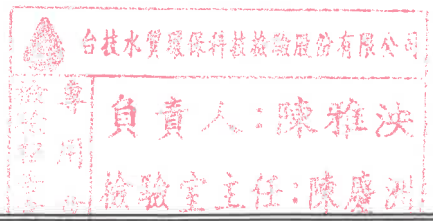 台技水質環保科技檢驗股份有限公司
檢驗報告專用章
負責人：陳雅泱
檢驗室主任：陳慶洲